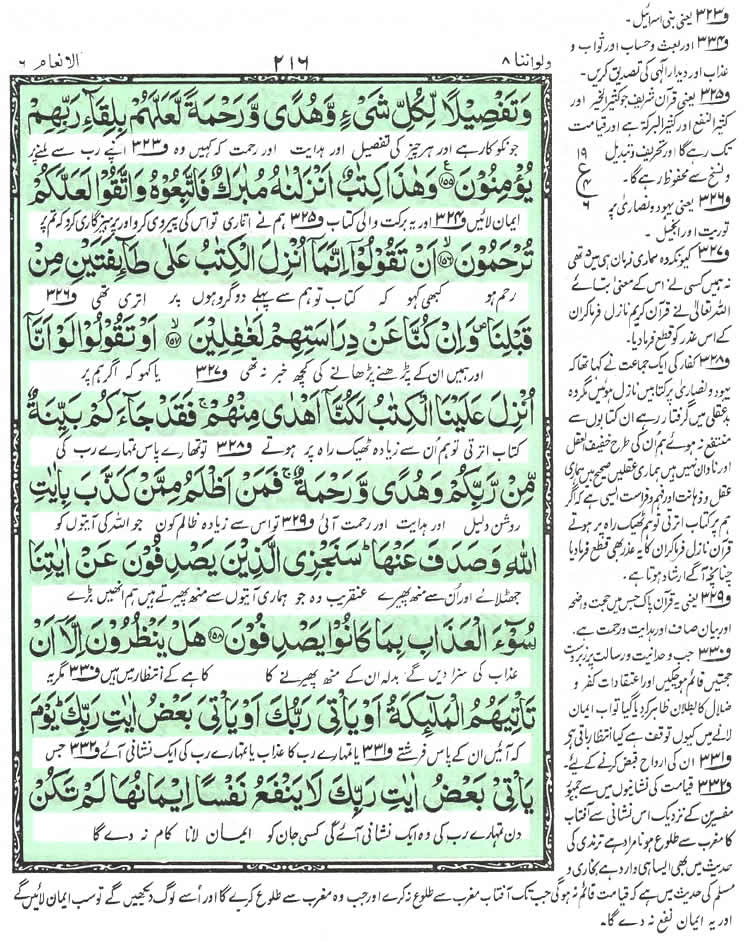 ولواننا ٨
٢١٦
الانعام ٦
وَتَفْصِيْلًا لِّكُلِّ شَيْءٍ وَّهُدًى وَّرَحْمَةً لَّعَلَّهُمْ بِلِقَآءِ رَبِّهِمْ
جو نکوکار ہے اور ہر چیز کی تفصیل اور ہدایت اور رحمت کہ کہیں وہ ف۳۲۳ اپنے رب سے ملنے پر
يُؤْمِنُوْنَ ﴿١٥٥﴾ وَهٰذَا كِتٰبٌ اَنْزَلْنٰهُ مُبٰرَكٌ فَاتَّبِعُوْهُ وَاتَّقُوْا لَعَلَّكُمْ
ایمان لائیں ف۳۲۴ اور یہ برکت والی کتاب ف۳۲۵ ہم نے اتاری تو اس کی پیروی کرو اور پرہیزگاری کرو کہ تم پر
تُرْحَمُوْنَ ﴿١٥٦﴾ اَنْ تَقُوْلُوْٓا اِنَّمَآ اُنْزِلَ الْكِتٰبُ عَلٰى طَآئِفَتَيْنِ مِنْ
رحم ہو کبھی کہو کہ کتاب تو ہم سے پہلے دو گروہوں پر اتری تھی ف۳۲۶
قَبْلِنَا وَاِنْ كُنَّا عَنْ دِرَاسَتِهِمْ لَغٰفِلِيْنَ ﴿١٥٧﴾ اَوْ تَقُوْلُوْا لَوْ اَنَّآ
اور ہمیں ان کے پڑھنے پڑھانے کی کچھ خبر نہ تھی ف۳۲۷ یا کہو کہ اگر ہم پر
اُنْزِلَ عَلَيْنَا الْكِتٰبُ لَكُنَّآ اَهْدٰى مِنْهُمْ ۚ فَقَدْ جَآءَكُمْ بَيِّنَةٌ
کتاب اترتی تو ہم اُن سے زیادہ ٹھیک راہ پر ہوتے ف۳۲۸ تو تمہارے پاس تمہارے رب کی
مِّنْ رَّبِّكُمْ وَهُدًى وَّرَحْمَةٌ ۚ فَمَنْ اَظْلَمُ مِمَّنْ كَذَّبَ بِاٰيٰتِ
روشن دلیل اور ہدایت اور رحمت آئی ف۳۲۹ تو اس سے زیادہ ظالم کون جو اللہ کی آیتوں کو
اللّٰهِ وَصَدَفَ عَنْهَا ۗ سَنَجْزِي الَّذِيْنَ يَصْدِفُوْنَ عَنْ اٰيٰتِنَا
جھٹلائے اور اُن سے منھ پھیرے عنقریب وہ جو ہماری آیتوں سے منھ پھیرتے ہیں ہم انھیں بڑے
سُوْٓءَ الْعَذَابِ بِمَا كَانُوْا يَصْدِفُوْنَ ﴿١٥٨﴾ هَلْ يَنْظُرُوْنَ اِلَّآ اَنْ
عذاب کی سزا دیں گے بدلہ ان کے منھ پھیرنے کا کاہے کے انتظار میں ہیں ف۳۳۰ مگر یہ
تَاْتِيَهُمُ الْمَلٰٓئِكَةُ اَوْ يَاْتِيَ رَبُّكَ اَوْ يَاْتِيَ بَعْضُ اٰيٰتِ رَبِّكَ ۗ يَوْمَ
کہ آئیں ان کے پاس فرشتے ف۳۳۱ یا تمہارے رب کا عذاب یا تمہارے رب کی ایک نشانی آئے ف۳۳۲ جس
يَاْتِيْ بَعْضُ اٰيٰتِ رَبِّكَ لَا يَنْفَعُ نَفْسًا اِيْمَانُهَا لَمْ تَكُنْ
دن تمہارے رب کی وہ ایک نشانی آئے گی کسی جان کو ایمان لانا کام نہ دے گا
ف۳۲۳ یعنی بنی اسرائیل ۔
ف۳۳۴ اور بعث و حساب اور ثواب و
عذاب اور دیدار الٰہی کی تصدیق کریں ۔
ف۳۲۵ یعنی قرآن شریف جو کثیر الخیر اور
کثیر النفع اور کثیر البرکۃ ہے اور قیامت
تک رہے گا اور تحریف و تبدیل
و نسخ سے محفوظ رہے گا ۔
١٩
ع
٤
٦
ف۳۲۶ یعنی یہود و نصاریٰ پر
توریت اور انجیل ۔
ف۳۲۷ کیونکہ وہ ہماری زبان ہی میں نہ تھی
نہ ہمیں کسی نے اس کے معنیٰ بتائے
اللہ تعالیٰ نے قرآن کریم نازل فرما کر ان
کے اس عذر کو قطع فرما دیا ۔
ف۳۲۸ کفار کی ایک جماعت نے کہا تھا کہ
یہود و نصاریٰ پر کتابیں نازل ہوئیں مگر وہ
بدعقلی میں گرفتار رہے ان کتابوں سے
منتفع نہ ہوئے ہم ان کی طرح خفیف العقل
اور نادان نہیں ہیں ہماری عقلیں صحیح ہیں ہماری
عقل و ذہانت اور فہم و فراست ایسی ہے کہ اگر
ہم پر کتاب اترتی تو ہم ٹھیک راہ پر ہوتے
قرآن نازل فرما کر ان کا یہ عذر بھی قطع فرما دیا
چنانچہ آگے ارشاد ہوتا ہے ۔
ف۳۲۹ یعنی یہ قرآن پاک جس میں حجت واضحہ
اور بیان صاف اور ہدایت و رحمت ہے ۔
ف۳۳۰ جب وحدانیت و رسالت پر زبردست
حجتیں قائم ہو چکیں اور اعتقادات کفر و
ضلال کا بطلان ظاہر کر دیا گیا تو اب ایمان
لانے میں کیوں توقف ہے کیا انتظار باقی ہے
ف۳۳۱ ان کی ارواح قبض کرنے کے لئے ۔
ف۳۳۲ قیامت کی نشانیوں میں سے جمہور
مفسرین کے نزدیک اس نشانی سے آفتاب
کا مغرب سے طلوع ہونا مراد ہے ترمذی کی
حدیث میں بھی ایسا ہی وارد ہے بخاری و
مسلم کی حدیث میں ہے کہ قیامت قائم نہ ہوگی جب تک آفتاب مغرب سے طلوع نہ کرے اور جب وہ مغرب سے طلوع کرے گا اور اُسے لوگ دیکھیں گے تو سب ایمان لائیں گے
اور یہ ایمان نفع نہ دے گا ۔